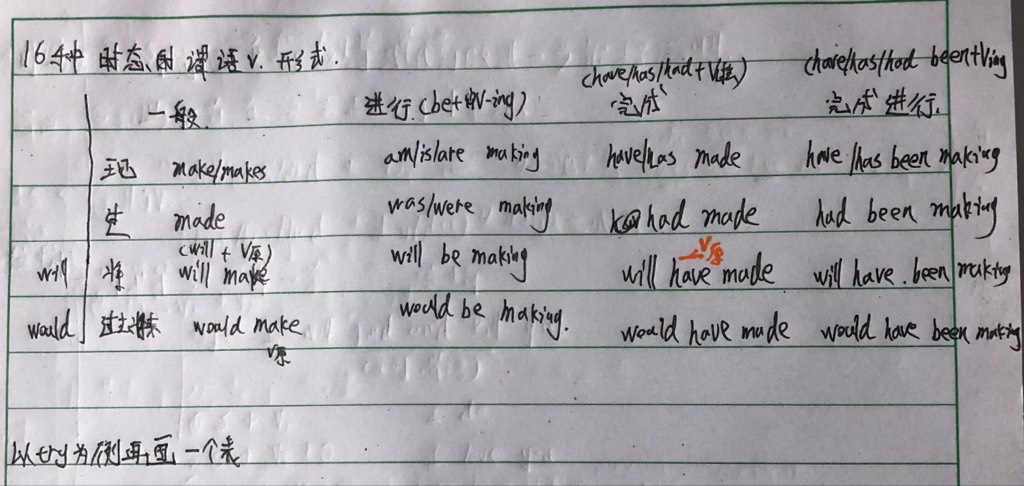 16种时态的谓语v.形式.
一般 进行(be+V-ing) (have/has/had+V过) 完成 (have/has/had been+Ving 完成进行.
现 make/makes am/is/are making have/has made have/has been making
过 made was/were making had made had been making
(will + V原)
will 将 will make will be making will have made V原 will have.been making
would 过去将来 would make would be making. would have made would have been making
V原
以try为例再画一个表